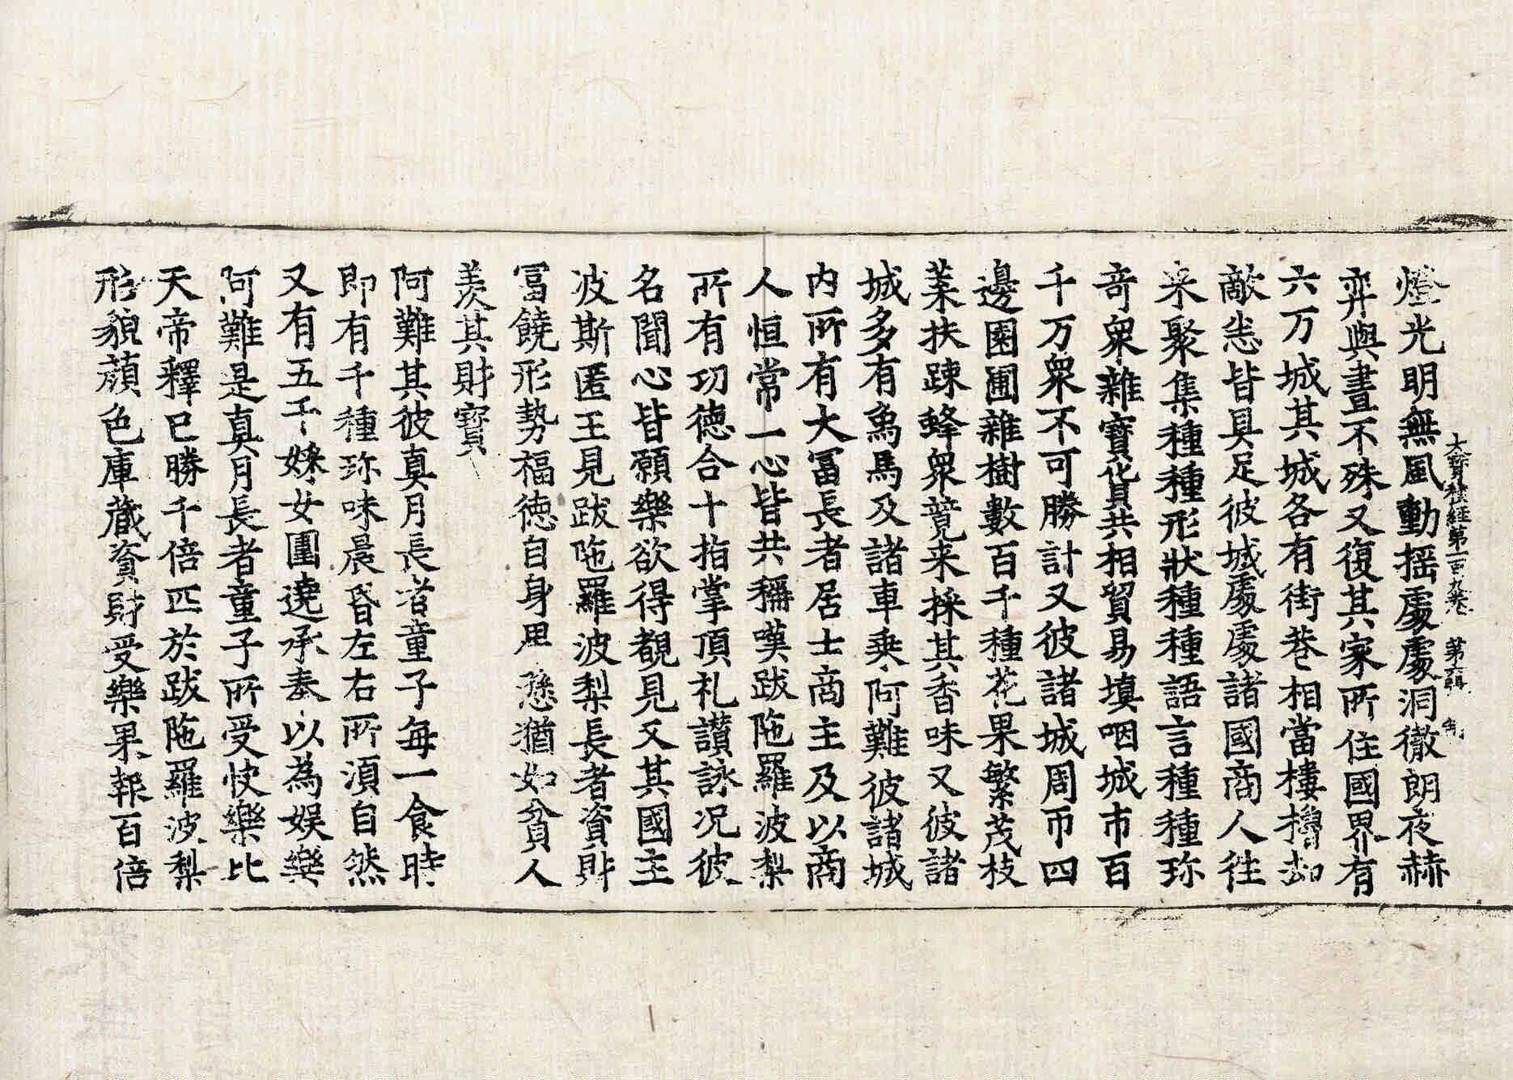 燈光明無風動揺處處洞徹朗夜赫
弈與晝不殊又復其家所住國界有
六万城其城各有街巷相當樓櫓却
敵悉皆具足彼城處處諸國商人徃
来聚集種種形狀種種語言種種珎
竒衆雜寶貨共相貿易填咽城市百
千万衆不可勝計又彼諸城周帀四
邊園圃雜樹數百千種花果繁茂枝
葉扶踈蜂衆競来採其香味又彼諸
城多有象馬及諸車乘阿難彼諸城
内所有大冨長者居士商主及以商
人恒常一心皆共稱嘆跋陁羅波梨
所有功德合十指掌頂礼讃詠况彼
名聞心皆願樂欲得覩見又其國主
波斯匿王見跋陁羅波梨長者資財
冨饒形勢福德自身思惟猶如貧人
羨其財寳
阿難其彼真月長者童子每一食時
即有千種珎味晨昏左右所湏自然
又有五千婇女圍遶承奉以為娛樂
阿難是真月長者童子所受快樂比
天帝釋已勝千倍匹於跋陁羅波梨
形貌顔色庫藏資財受樂果報百倍
大寶積經第一百九卷 第六張